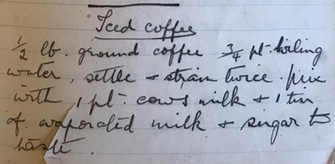 Iced coffee
½ lb. ground coffee ¾ pt. boiling
water, settle + strain twice. Mix
with 1 pt. cows milk + 1 tin
of evaporated milk + sugar to
taste.